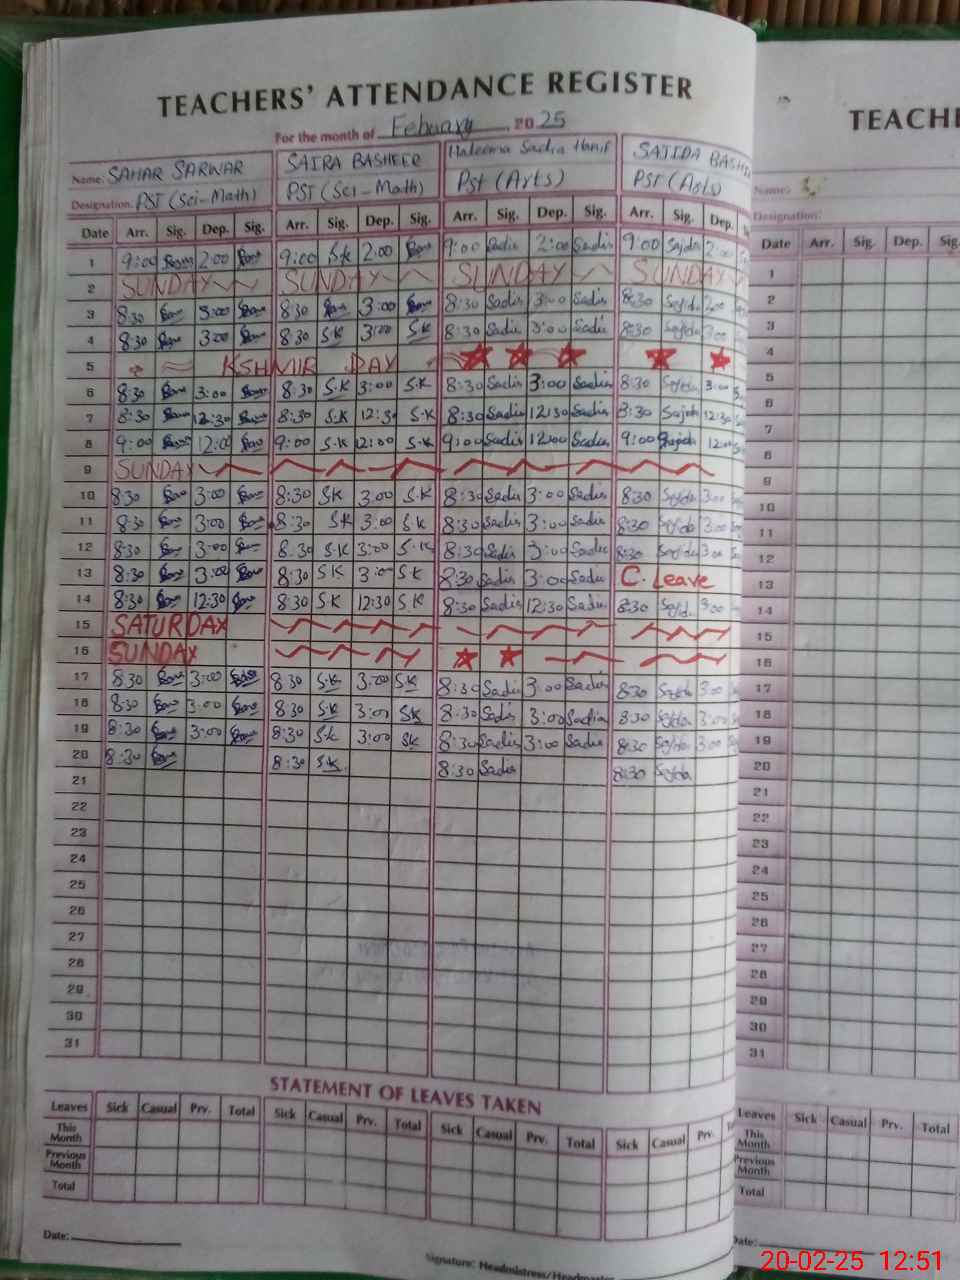 TEACHERS' ATTENDANCE REGISTER
For the month of Febuary, 2025
TEACHE
Name: SAHAR SARWAR SAIRA BASHEER Haleema Sadia Hanif SAJIDA BASHE
Designation: PST (Sci-Math) PST (Sci-Math) Pst (Arts) PST (Arts)
Name:
Designation:
Date Arr. Sig. Dep. Sig. Arr. Sig. Dep. Sig. Arr. Sig. Dep. Sig. Arr. Sig. Dep. S
Date Arr. Sig. Dep. Sig.
1 9:00 2:00 9:00 S.K 2:00 9:00 Sadia 2:00 Sadia 9:00 Sajda 2:00
2 SUNDAY SUNDAY SUNDAY SUNDAY
3 8:30 3:00 8:30 3:00 8:30 Sadia 3:00 Sadia 8:30 Sajda
4 8:30 3:00 8:30 S.K 3:00 S.K 8:30 Sadia 3:00 Sadia 8:30 Sajda 3:00
5 KSHMIR DAY
6 8:30 3:00 8:30 S.K 3:00 S.K 8:30 Sadia 3:00 Sadia 8:30 Sajda 3:00
7 8:30 12:30 8:30 S.K 12:30 S.K 8:30 Sadia 12:30 Sadia 8:30 Sajda 12:30
8 9:00 12:00 9:00 S.K 12:00 S.K 9:00 Sadia 12:00 Sadia 9:00 Sajda 12:00
9 SUNDAY
10 8:30 3:00 8:30 S.K 3:00 S.K 8:30 Sadia 3:00 Sadia 8:30 Sajda 3:00
11 8:30 3:00 8:30 S.K 3:00 S.K 8:30 Sadia 3:00 Sadia 8:30 Sajda 3:00
12 8:30 3:00 8:30 S.K 3:00 S.K 8:30 Sadia 3:00 Sadia 8:30 Sajda 3:00
13 8:30 3:00 8:30 S.K 3:00 S.K 8:30 Sadia 3:00 Sadia C. Leave
14 8:30 12:30 8:30 S.K 12:30 S.K 8:30 Sadia 12:30 Sadia 8:30 Sajda
15 SATURDAY
16 SUNDAY
17 8:30 3:00 8:30 S.K 3:00 S.K 8:30 Sadia 3:00 Sadia 8:30 Sajda 3:00
18 8:30 3:00 8:30 S.K 3:00 S.K 8:30 Sadia 3:00 Sadia 8:30 Sajda 3:00
19 8:30 3:00 8:30 S.K 3:00 S.K 8:30 Sadia 3:00 Sadia 8:30 Sajda 3:00
20 8:30 8:30 S.K 8:30 Sadia 8:30 Sajda
21
22
23
24
25
26
27
28
29
30
31
1
2
3
4
5
6
7
8
9
10
11
12
13
14
15
16
17
18
19
20
21
22
23
24
25
26
27
28
29
30
31
STATEMENT OF LEAVES TAKEN
Leaves Sick Casual Prv. Total Sick Casual Prv. Total Sick Casual Prv. Total Sick Casual Prv.
This Month
Previous Month
Total
Date:
Signature: Headmistress/Headmaster
Leaves Sick Casual Prv. Total
This Month
Previous Month
Total
Date:
20-02-25 12:51